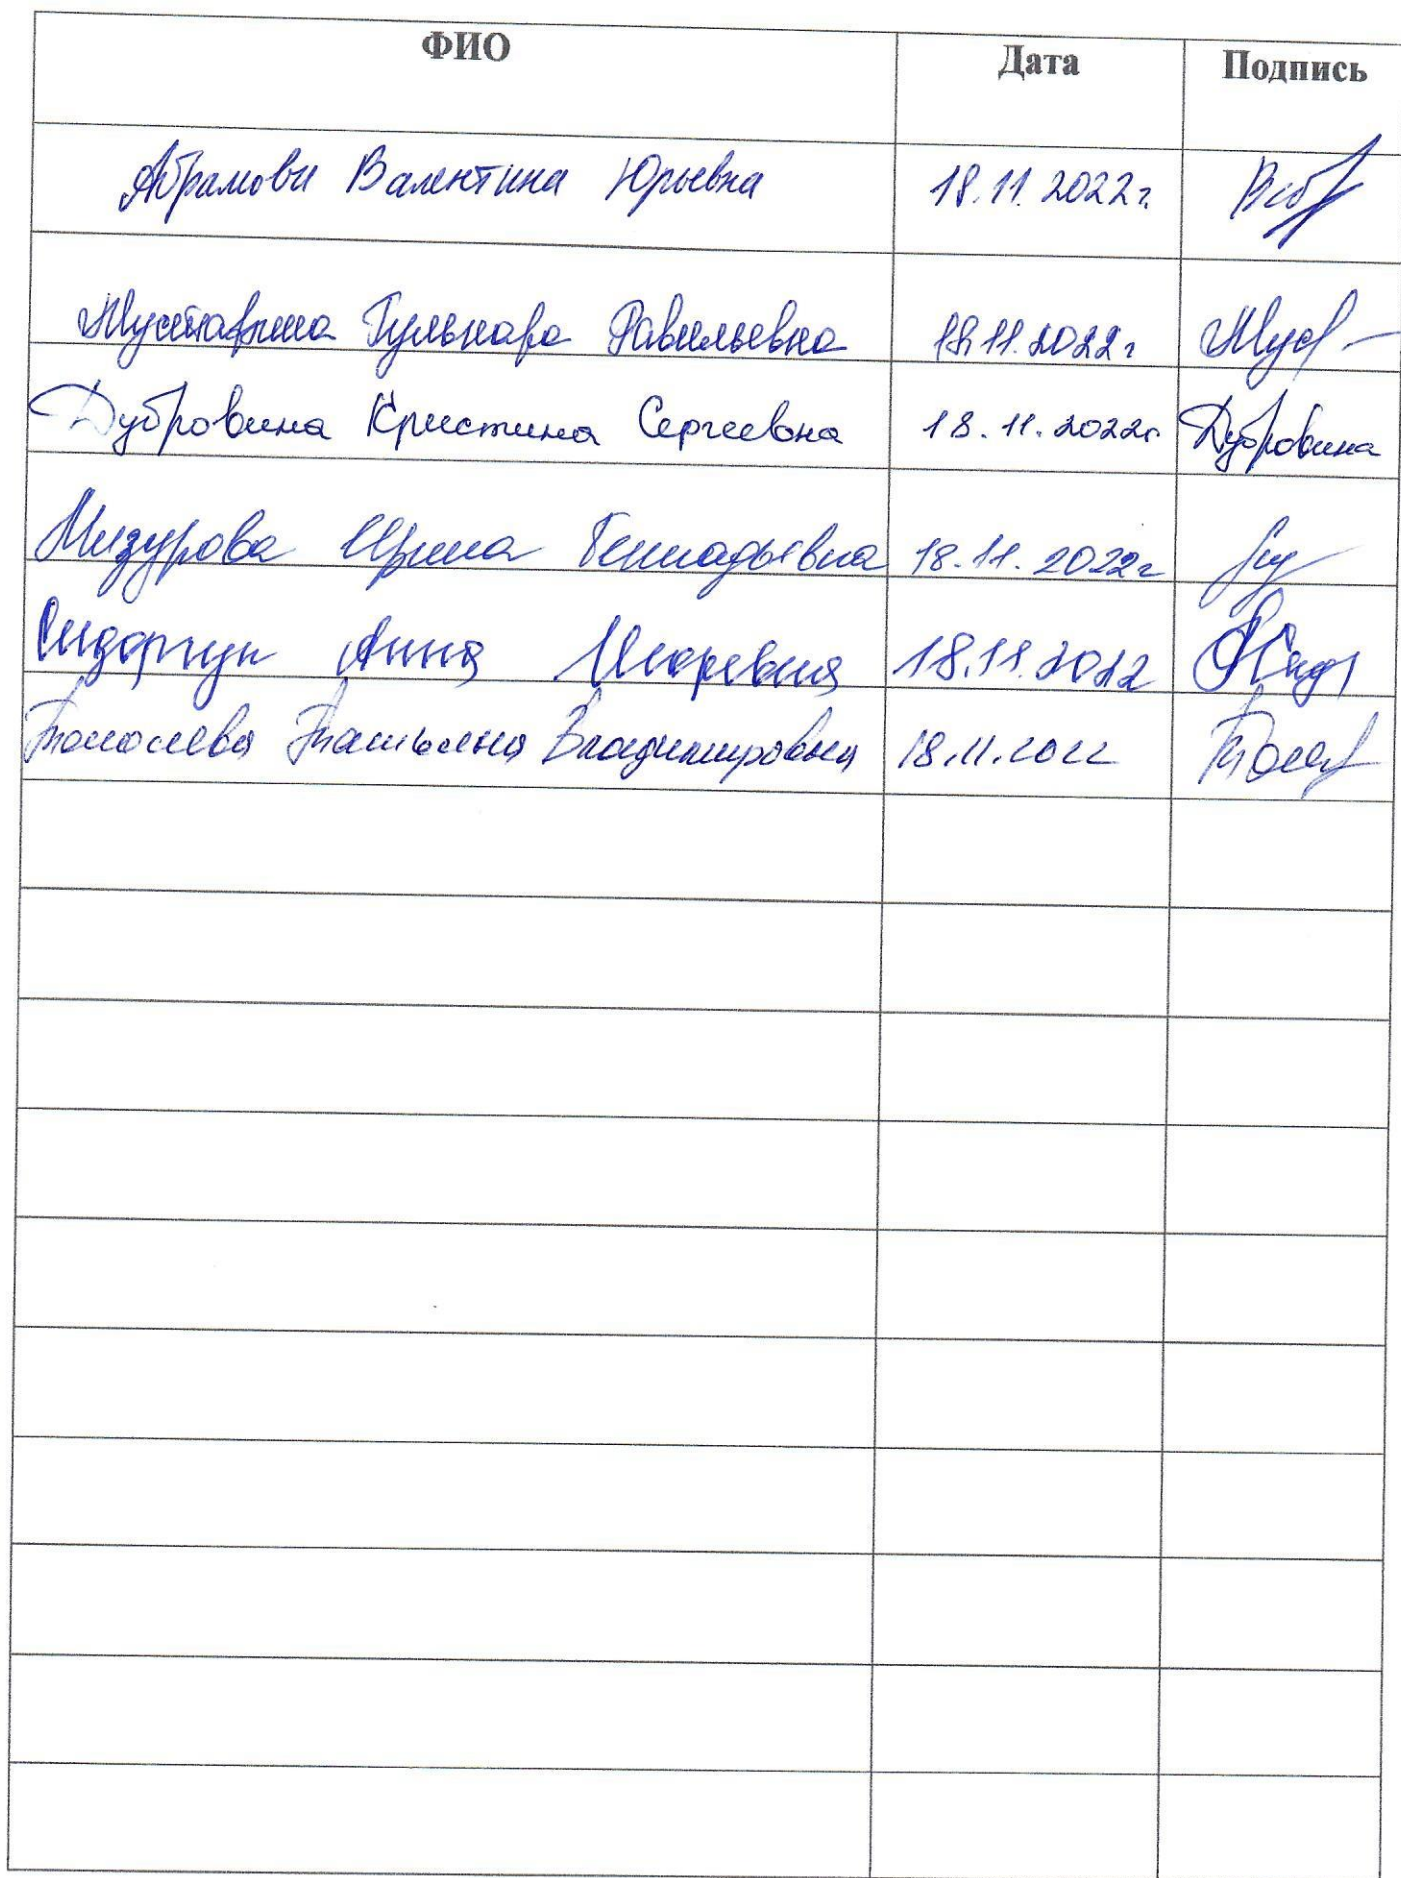 ФИО Дата Подпись
Абрамова Валентина Юрьевна 18.11.2022г.
Мустафина Гульнара Равильевна 18.11.2022г
Дубровина Кристина Сергеевна 18.11.2022г Дубровина
Мизурова Ирина Геннадьевна 18.11.2022г
Сидорчук Анна Игоревна 18.11.2022
Татьяна Владимировна 18.11.2022